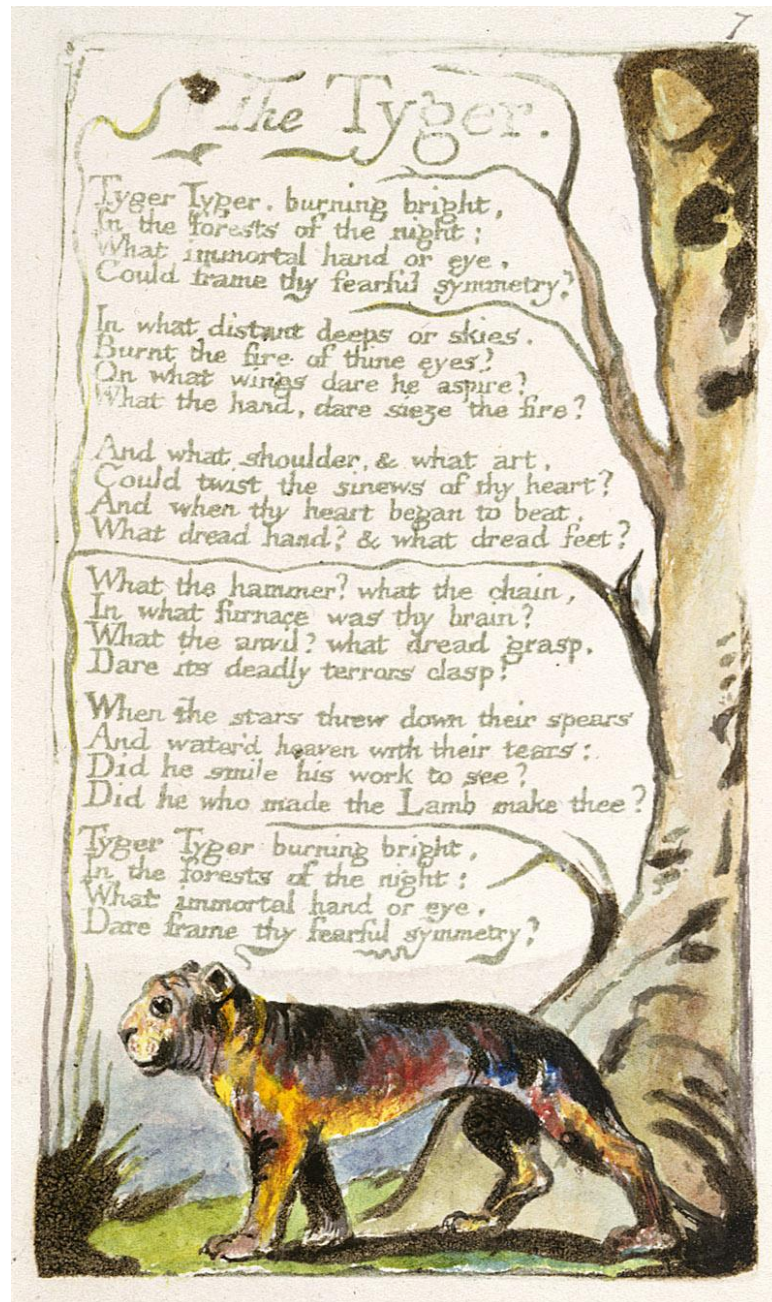 7
The Tyger.
Tyger Tyger. burning bright,
In the forests of the night;
What immortal hand or eye.
Could frame thy fearful symmetry?
In what distant deeps or skies.
Burnt the fire of thine eyes?
On what wings dare he aspire?
What the hand, dare sieze the fire?
And what shoulder, & what art,
Could twist the sinews of thy heart?
And when thy heart began to beat,
What dread hand? & what dread feet?
What the hammer? what the chain,
In what furnace was thy brain?
What the anvil? what dread grasp,
Dare its deadly terrors clasp!
When the stars threw down their spears
And water'd heaven with their tears:
Did he smile his work to see?
Did he who made the Lamb make thee?
Tyger Tyger burning bright,
In the forests of the night:
What immortal hand or eye,
Dare frame thy fearful symmetry?